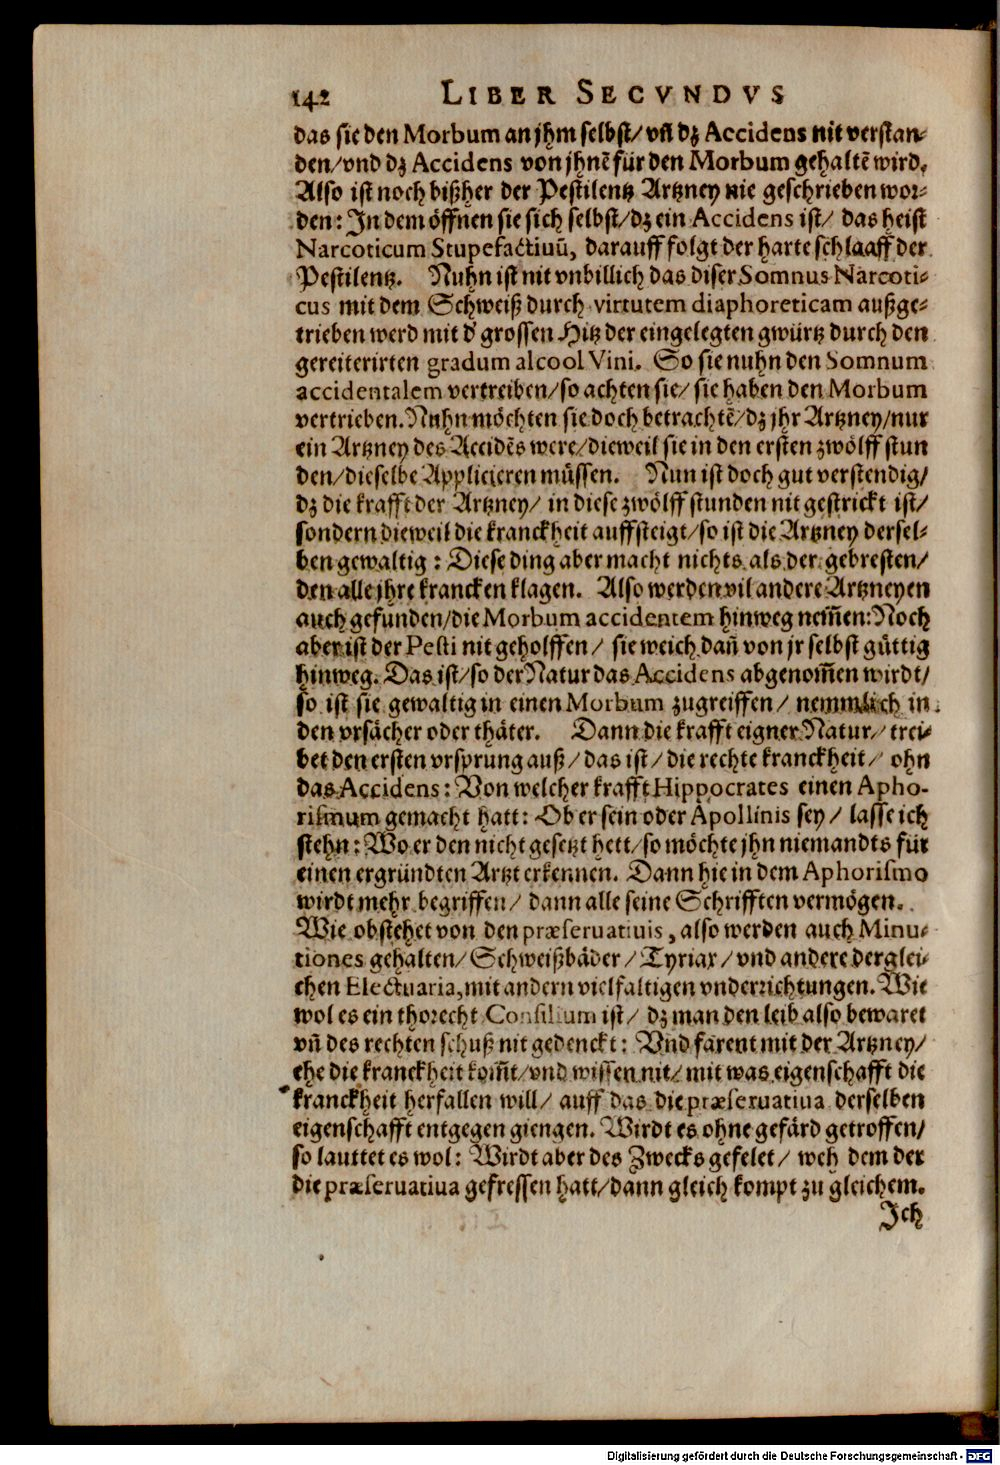 142 LIBER SECVNDVS
das sie den Morbum an jhm selbst/ vñ dz Accidens nit verstan-
den/ vnd dz Accidens von jhnẽ für den Morbum gehaltẽ wird.
Also ist noch bißher der Pestilentz Artzney nie geschrieben wor-
den: In dem öffnen sie sich selbst/ dz ein Accidens ist/ das heist
Narcoticum Stupefactiuũ, darauff folgt der harte schlaaff der
Pestilentz. Nuhn ist nit vnbillich das diser Somnus Narcoti-
cus mit dem Schweiß durch virtutem diaphoreticam außge-
trieben werd mit d' grossen Hitz der eingelegten gwürtz durch den
gereiterirten gradum alcool Vini. So sie nuhn den Somnum
accidentalem vertreiben/ so achten sie/ sie haben den Morbum
vertrieben. Nuhn möchten sie doch betrachtẽ/ dz jhr Artzney/ nur
ein Artzney des Accidẽs were/ dieweil sie in den ersten zwölff stun
den/ dieselbe Applicieren müssen. Nun ist doch gut verstendig/
dz die krafft der Artzney/ in diese zwölff stunden nit gestrickt ist/
sondern dieweil die kranckheit auffsteigt/ so ist die Artzney dersel-
ben gewaltig: Diese ding aber macht nichts als der gebresten/
den alle jhre krancken klagen. Also werden vil andere Artzneyen
auch gefunden/ die Morbum accidentem hinweg nem̃en: Noch
aber ist der Pesti nit geholffen/ sie weich dañ von jr selbst güttig
hinweg. Das ist/ so der Natur das Accidens abgenom̃en wirdt/
so ist sie gewaltig in einen Morbum zugreiffen/ nemmlich in
den vrsächer oder thäter. Dann die krafft eigner Natur/ trei-
bet den ersten vrsprung auß/ das ist/ die rechte kranckheit/ ohn
das Accidens: Von welcher krafft Hippocrates einen Apho-
rismum gemacht hatt: Ob er sein oder Apollinis sey/ lasse ich
stehn: Wo er den nicht gesetzt hett/ so möchte jhn niemandts für
einen ergründten Artzt erkennen. Dann hie in dem Aphorismo
wirdt mehr begriffen/ dann alle seine Schrifften vermögen.
Wie obstehet von den præseruatiuis, also werden auch Minu-
tiones gehalten/ Schweißbäder/ Tyriax/ vnd andere derglei-
chen Electuaria, mit andern vielfaltigen vnderrichtungen. Wie
wol es ein thorecht Consilium ist/ dz man den leib also bewaret
vñ des rechten schuß nit gedenckt: Vnd farent mit der Artzney/
ehe die kranckheit kom̃t/ vnd wissen nit/ mit was eigenschafft die
kranckheit herfallen will/ auff das die præseruatiua derselben
eigenschafft entgegen giengen. Wirdt es ohne gefärd getroffen/
so lauttet es wol: Wirdt aber des Zwecks gefelet/ weh dem der
die præseruatiua gefressen hatt/ dann gleich kompt zu gleichem.
Ich
Digitalisierung gefördert durch die Deutsche Forschungsgemeinschaft - DFG